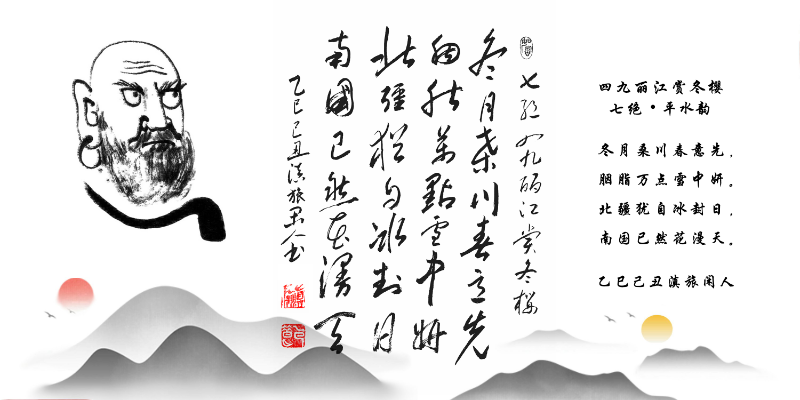 七绝四九丽江赏冬樱
冬月桑川春意先
胭脂万點雪中妍
北疆犹自冰封日
南國已然花漫天
乙巳己丑滇旅闲人书
四九丽江赏冬樱
七绝·平水韵
冬月桑川春意先，
胭脂万点雪中妍。
北疆犹自冰封日，
南国已然花漫天。
乙巳己丑滇旅闲人